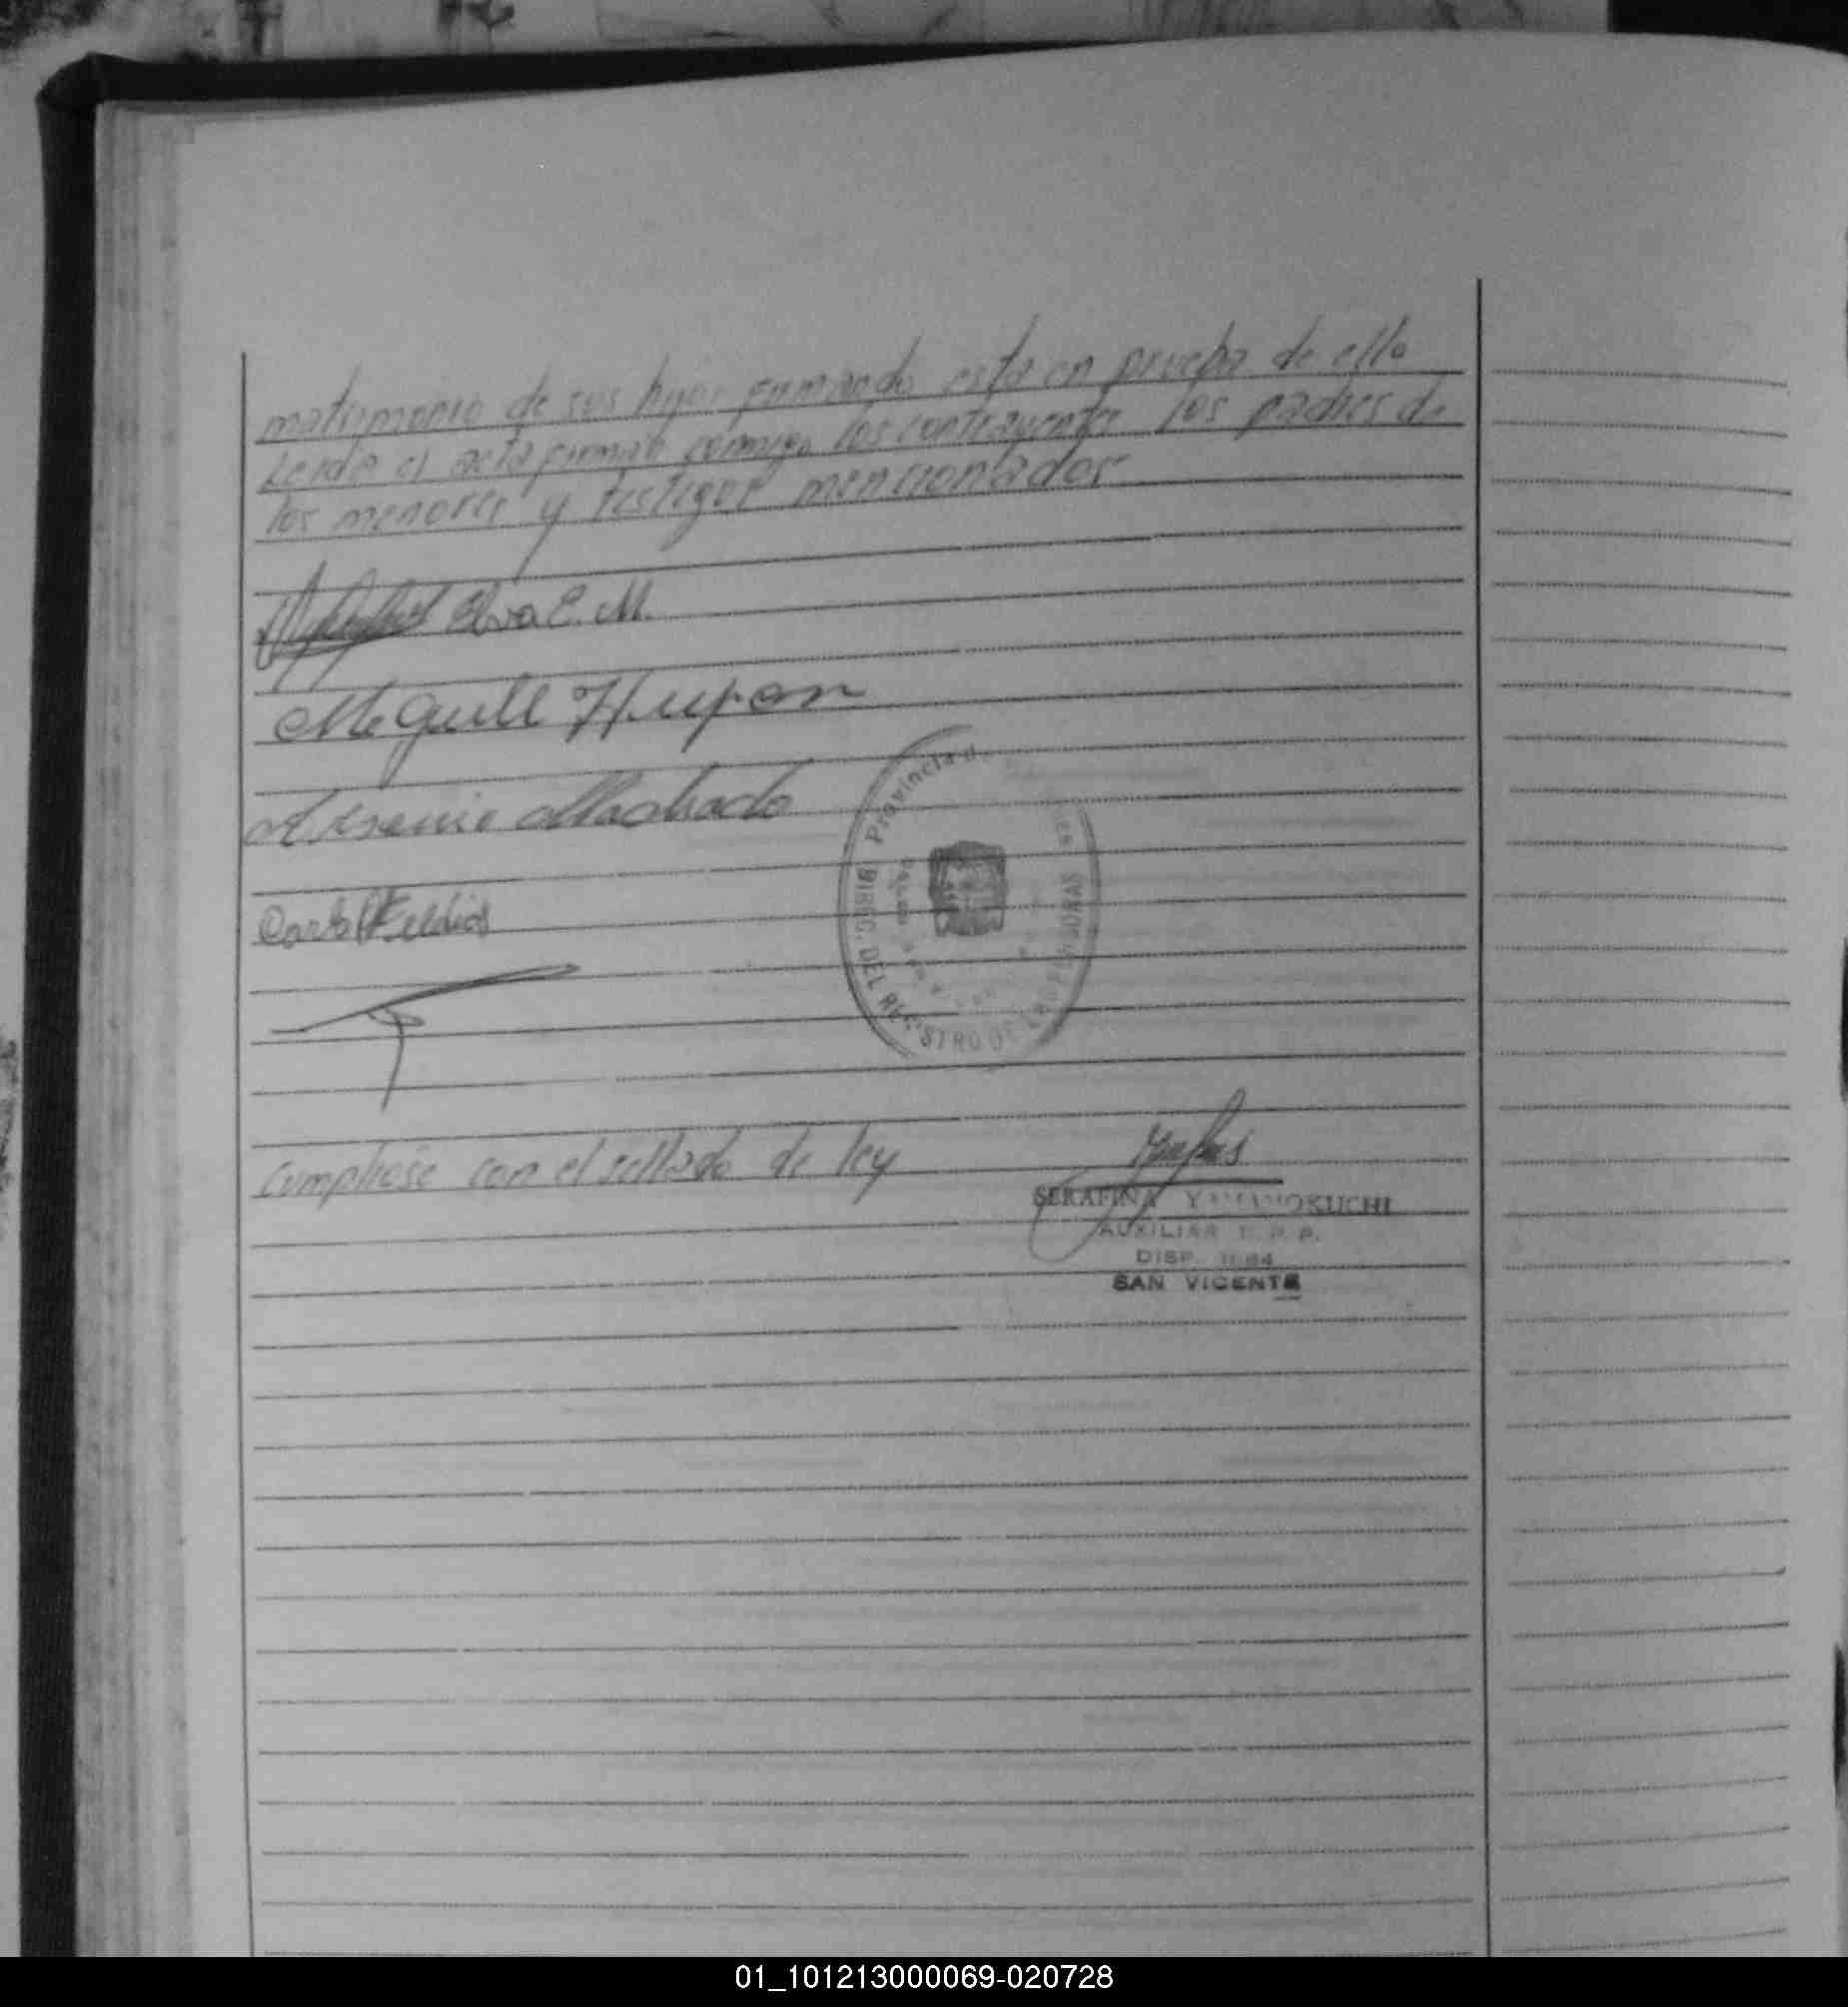 matrimonio de sus hijos firmando esta en prueba de ello
Leida el acta firman conmigo los contrayentes los padres de
los menores y testigos mencionados
Elva E. M.
Miguell
Arsenio Machado
Carlos
Provincia de
DIREC. DEL REGISTRO DE LAS PERSONAS
cumpliose con el sellado de ley
SERAFINA YAMANOKUCHI
AUXILIAR T. P. P.
DISP.
SAN VICENTE
01_101213000069-020728